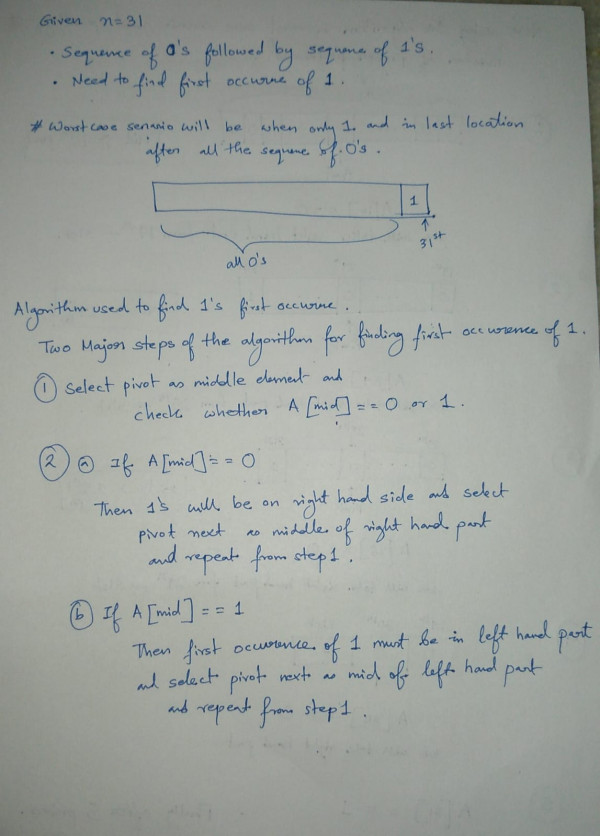 Given n=31
• Sequence of 0's followed by sequence of 1's.
• Need to find first occurne of 1.
# Worst case senario will be when only 1 and in last location
after all the sequence of 0's.
1
31st
all 0's
Algorithm used to find 1's first occurne.
Two Major steps of the algorithm for finding first occurence of 1.
① Select pivot as middle element and
check whether A[mid] == 0 or 1.
② ⓐ If A[mid] == 0
Then 1's will be on right hand side and select
pivot next as middle of right hand part
and repeat from step 1.
ⓑ If A[mid] == 1
Then first occurence of 1 must be in left hand part
and select pivot next as mid of left hand part
and repeat from step 1.